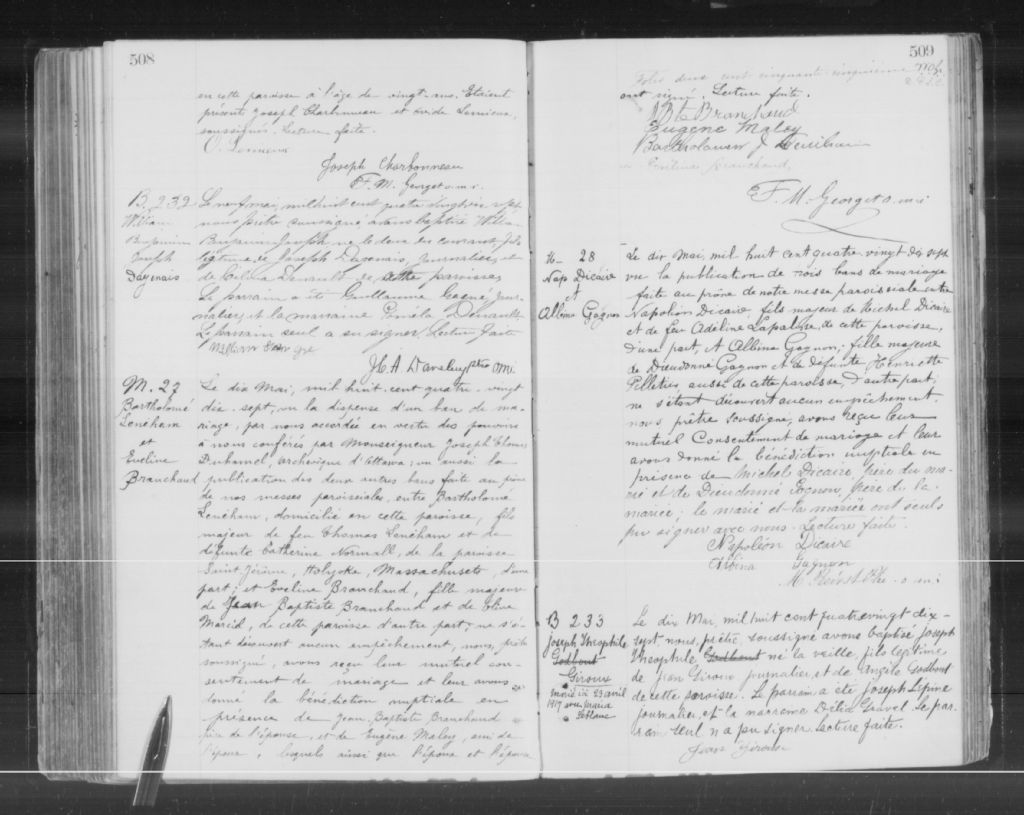 508
en cette paroisse à l'âge de vingt ans. Etaient
présents Joseph Charbonneau et Ovide Lemieux,
soussignés. Lecture faite.
O. Lemieux
Joseph Charbonneau
F. M. Georget o.m.i.
B. 232
William
Benjamin
Joseph
Dagenais
Le neuf mai, mil huit cent quatre vingt dix sept
nous prêtre soussigné avons baptisé William
Benjamin Joseph né le deux du courant, fils
légitime de Joseph Dagenais, journalier, et
de Délima Deneault de cette paroisse,
Le parrain a été Guillaume Gagné, jour-
nalier, et la marraine Pamela Deneault
Le parrain seul a su signer. Lecture faite
William
H. A. ptre omi.
M. 27
Bartholomé
Leneham
et
Eveline
Branchaud
Le dix Mai, mil huit cent quatre vingt
dix-sept, vu la dispense d'un ban de ma-
riage, par nous accordée en vertu des pouvoirs
à nous conférés par Monseigneur Joseph Thomas
Duhamel, archevêque d'Ottawa; vu aussi la
publication des deux autres bans faite au prône
de nos messes paroissiales, entre Bartholomé
Leneham, domicilié en cette paroisse, fils
majeur de feu Thomas Leneham et de
défunte Catherine Normall, de la paroisse
Saint Jérôme, Holyoke, Massachusets, d'une
part; et Eveline Branchaud, fille majeure
de Jean Baptiste Branchaud et de
de cette paroisse d'autre part; ne s'é-
tant découvert aucun empêchement, nous, prêtre
soussigné, avons reçu leur mutuel con-
sentement de mariage et leur avons
donné la bénédiction nuptiale en
présence de Jean Baptiste Branchaud
père de l'épouse, et de Eugène Maloy, ami de
l'épouse, lesquels ainsi que l'époux et l'épouse
509
Folio deux cent cinquante cinquième
ont signé. Lecture faite.
J Bte Branchaud
Eugene Maloy
Bartholomew J
Evelina Branchaud,
F. M. Georget o. m i
M- 28
Nap Dicaire
et
Albina Gagnon
Le dix Mai, mil huit cent quatre vingt dix sept
vu la publication de trois bans de mariage
faite au prône de notre messe paroissiale entre
Napoléon Dicaire, fils majeur de Michel Dicaire
et de feu Adeline Lapalme, de cette paroisse,
d'une part, et Albina Gagnon, fille majeure
de Dieudonné Gagnon et de défunte Henriette
Pelletier, aussi de cette paroisse, d'autre part;
ne s'étant découvert aucun empêchement,
nous prêtre soussigné, avons reçu leur
mutuel consentement de mariage et leur
avons donné la bénédiction nuptiale en
présence de Michel Dicaire, père du ma-
rié et de Dieudonné Gagnon, père de la
mariée; le marié et la mariée ont seuls
pu signer avec nous. Lecture faite.
Napoléon Dicaire
Albina Gagnon
o m i
B 233
Joseph Théophile
Godbout
Giroux
marié le 23 avril
1917 sous
Leblanc
Le dix Mai, mil huit cent quatrevingt dix-
sept nous, prêtre soussigné avons baptisé Joseph
Théophile Godbout né la veille, fils légitime
de Jean Giroux journalier, et de Angèle Godbout
de cette paroisse. Le parrain a été Joseph Lépine
journalier, et la marraine Délia Gravel. Le par-
rain seul n'a pu signer. Lecture faite.
Jean Giroux